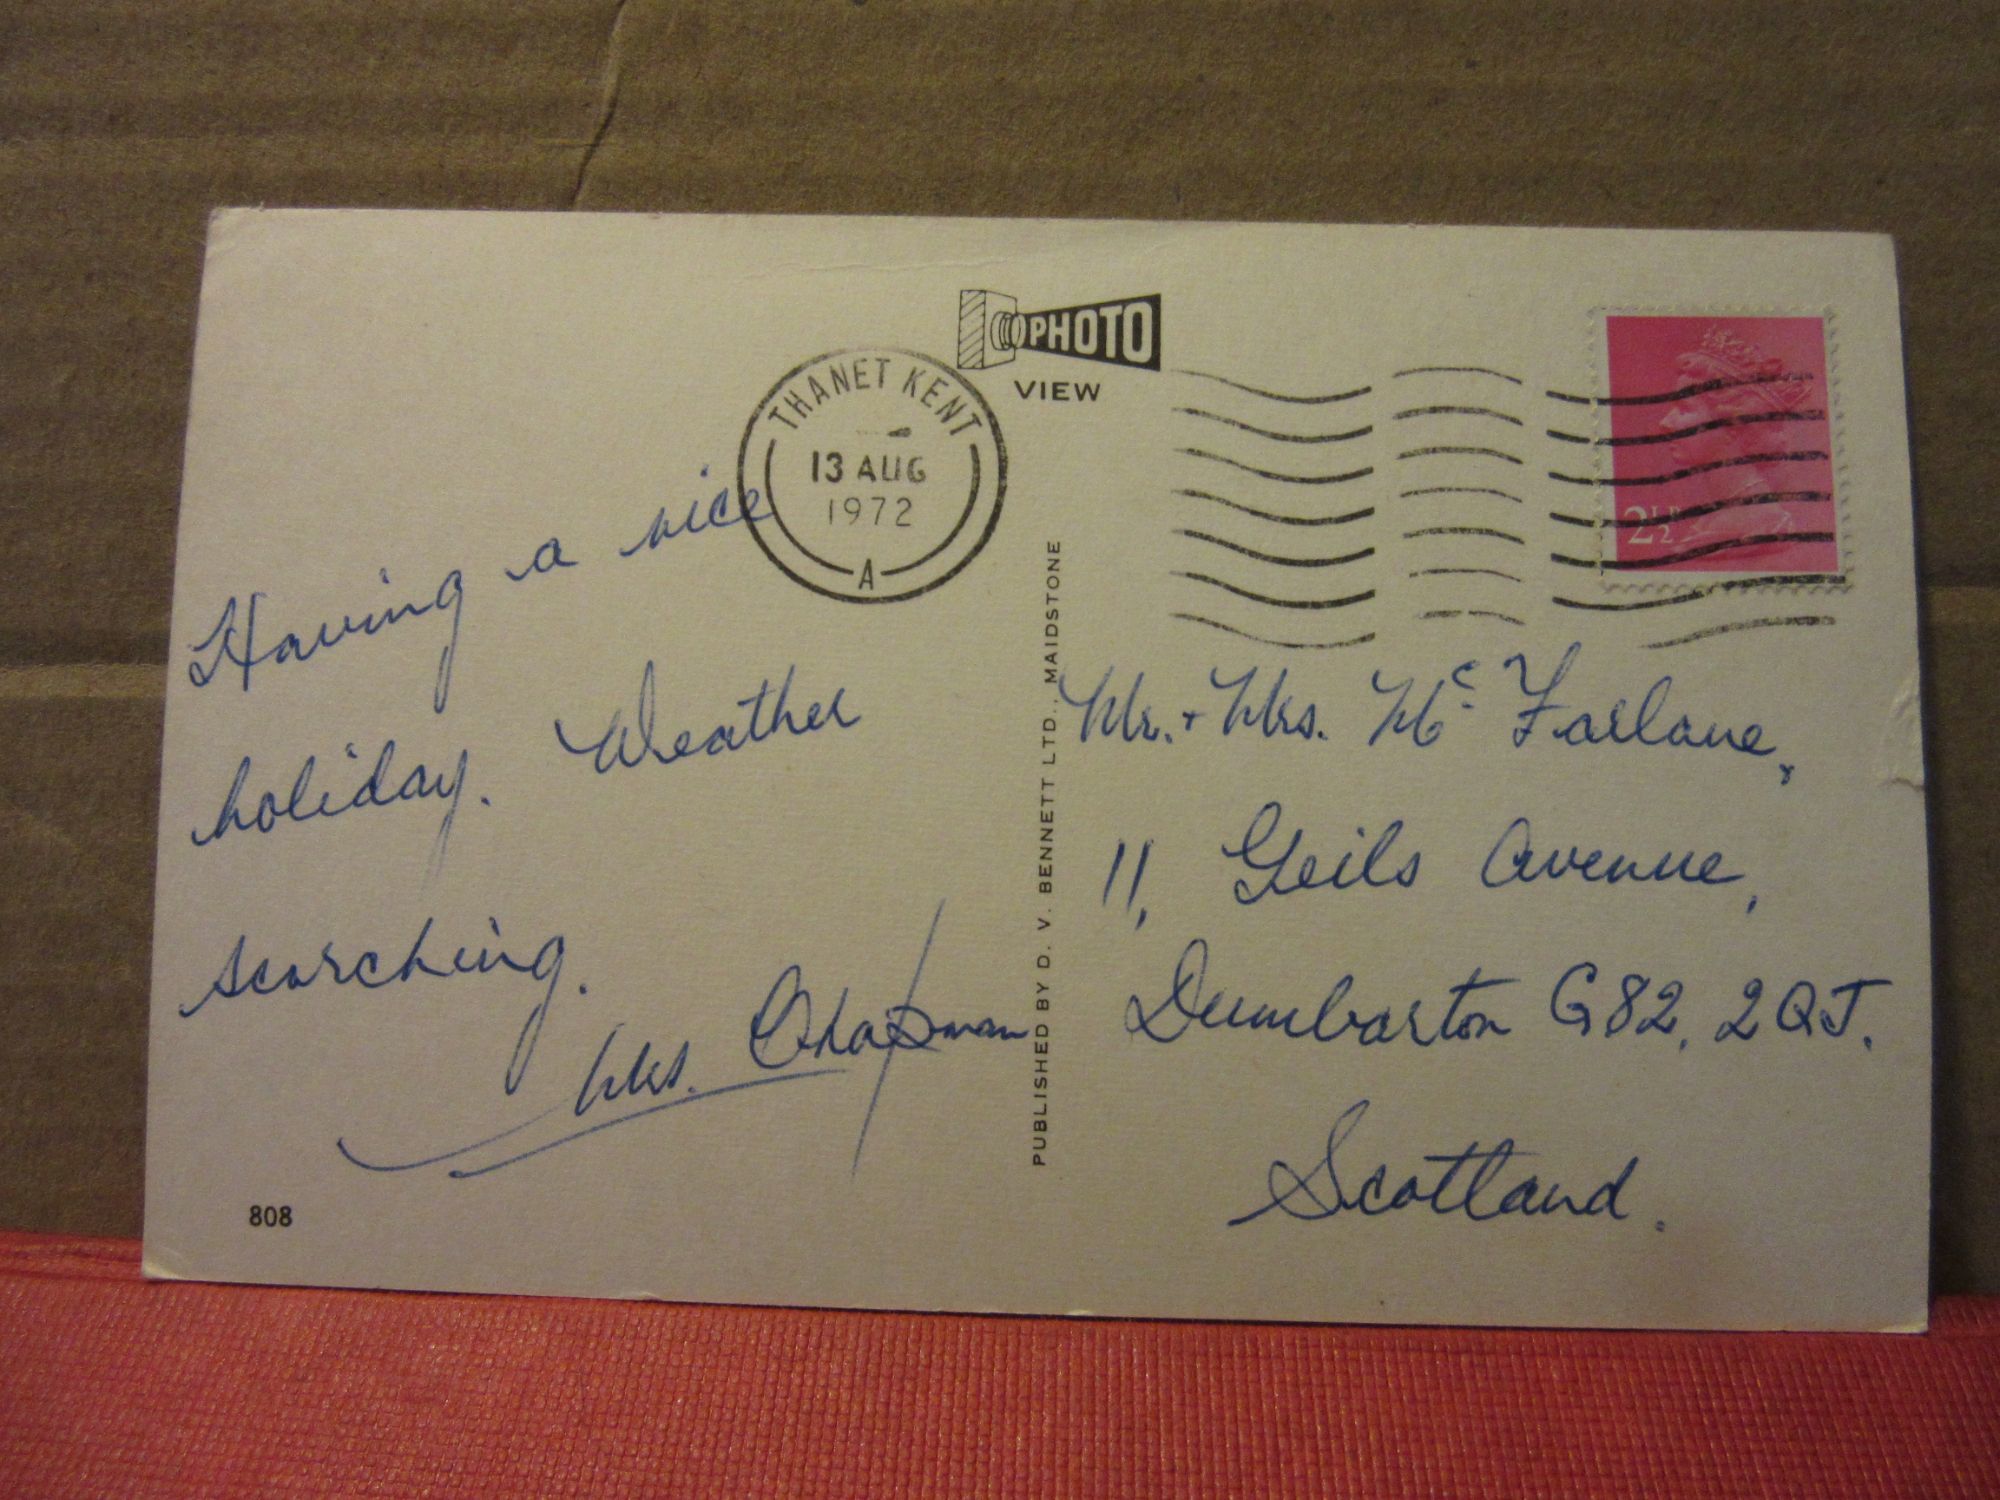 PHOTO
VIEW
THANET KENT
13 AUG
1972
A
2½P
Having a nice
holiday. Weather
scorching.
Mrs. Chapman
808
PUBLISHED BY D. V. BENNETT LTD., MAIDSTONE
Mr. + Mrs. Mc Farlane,
11, Geils Avenue,
Dumbarton G82, 2QJ.
Scotland.